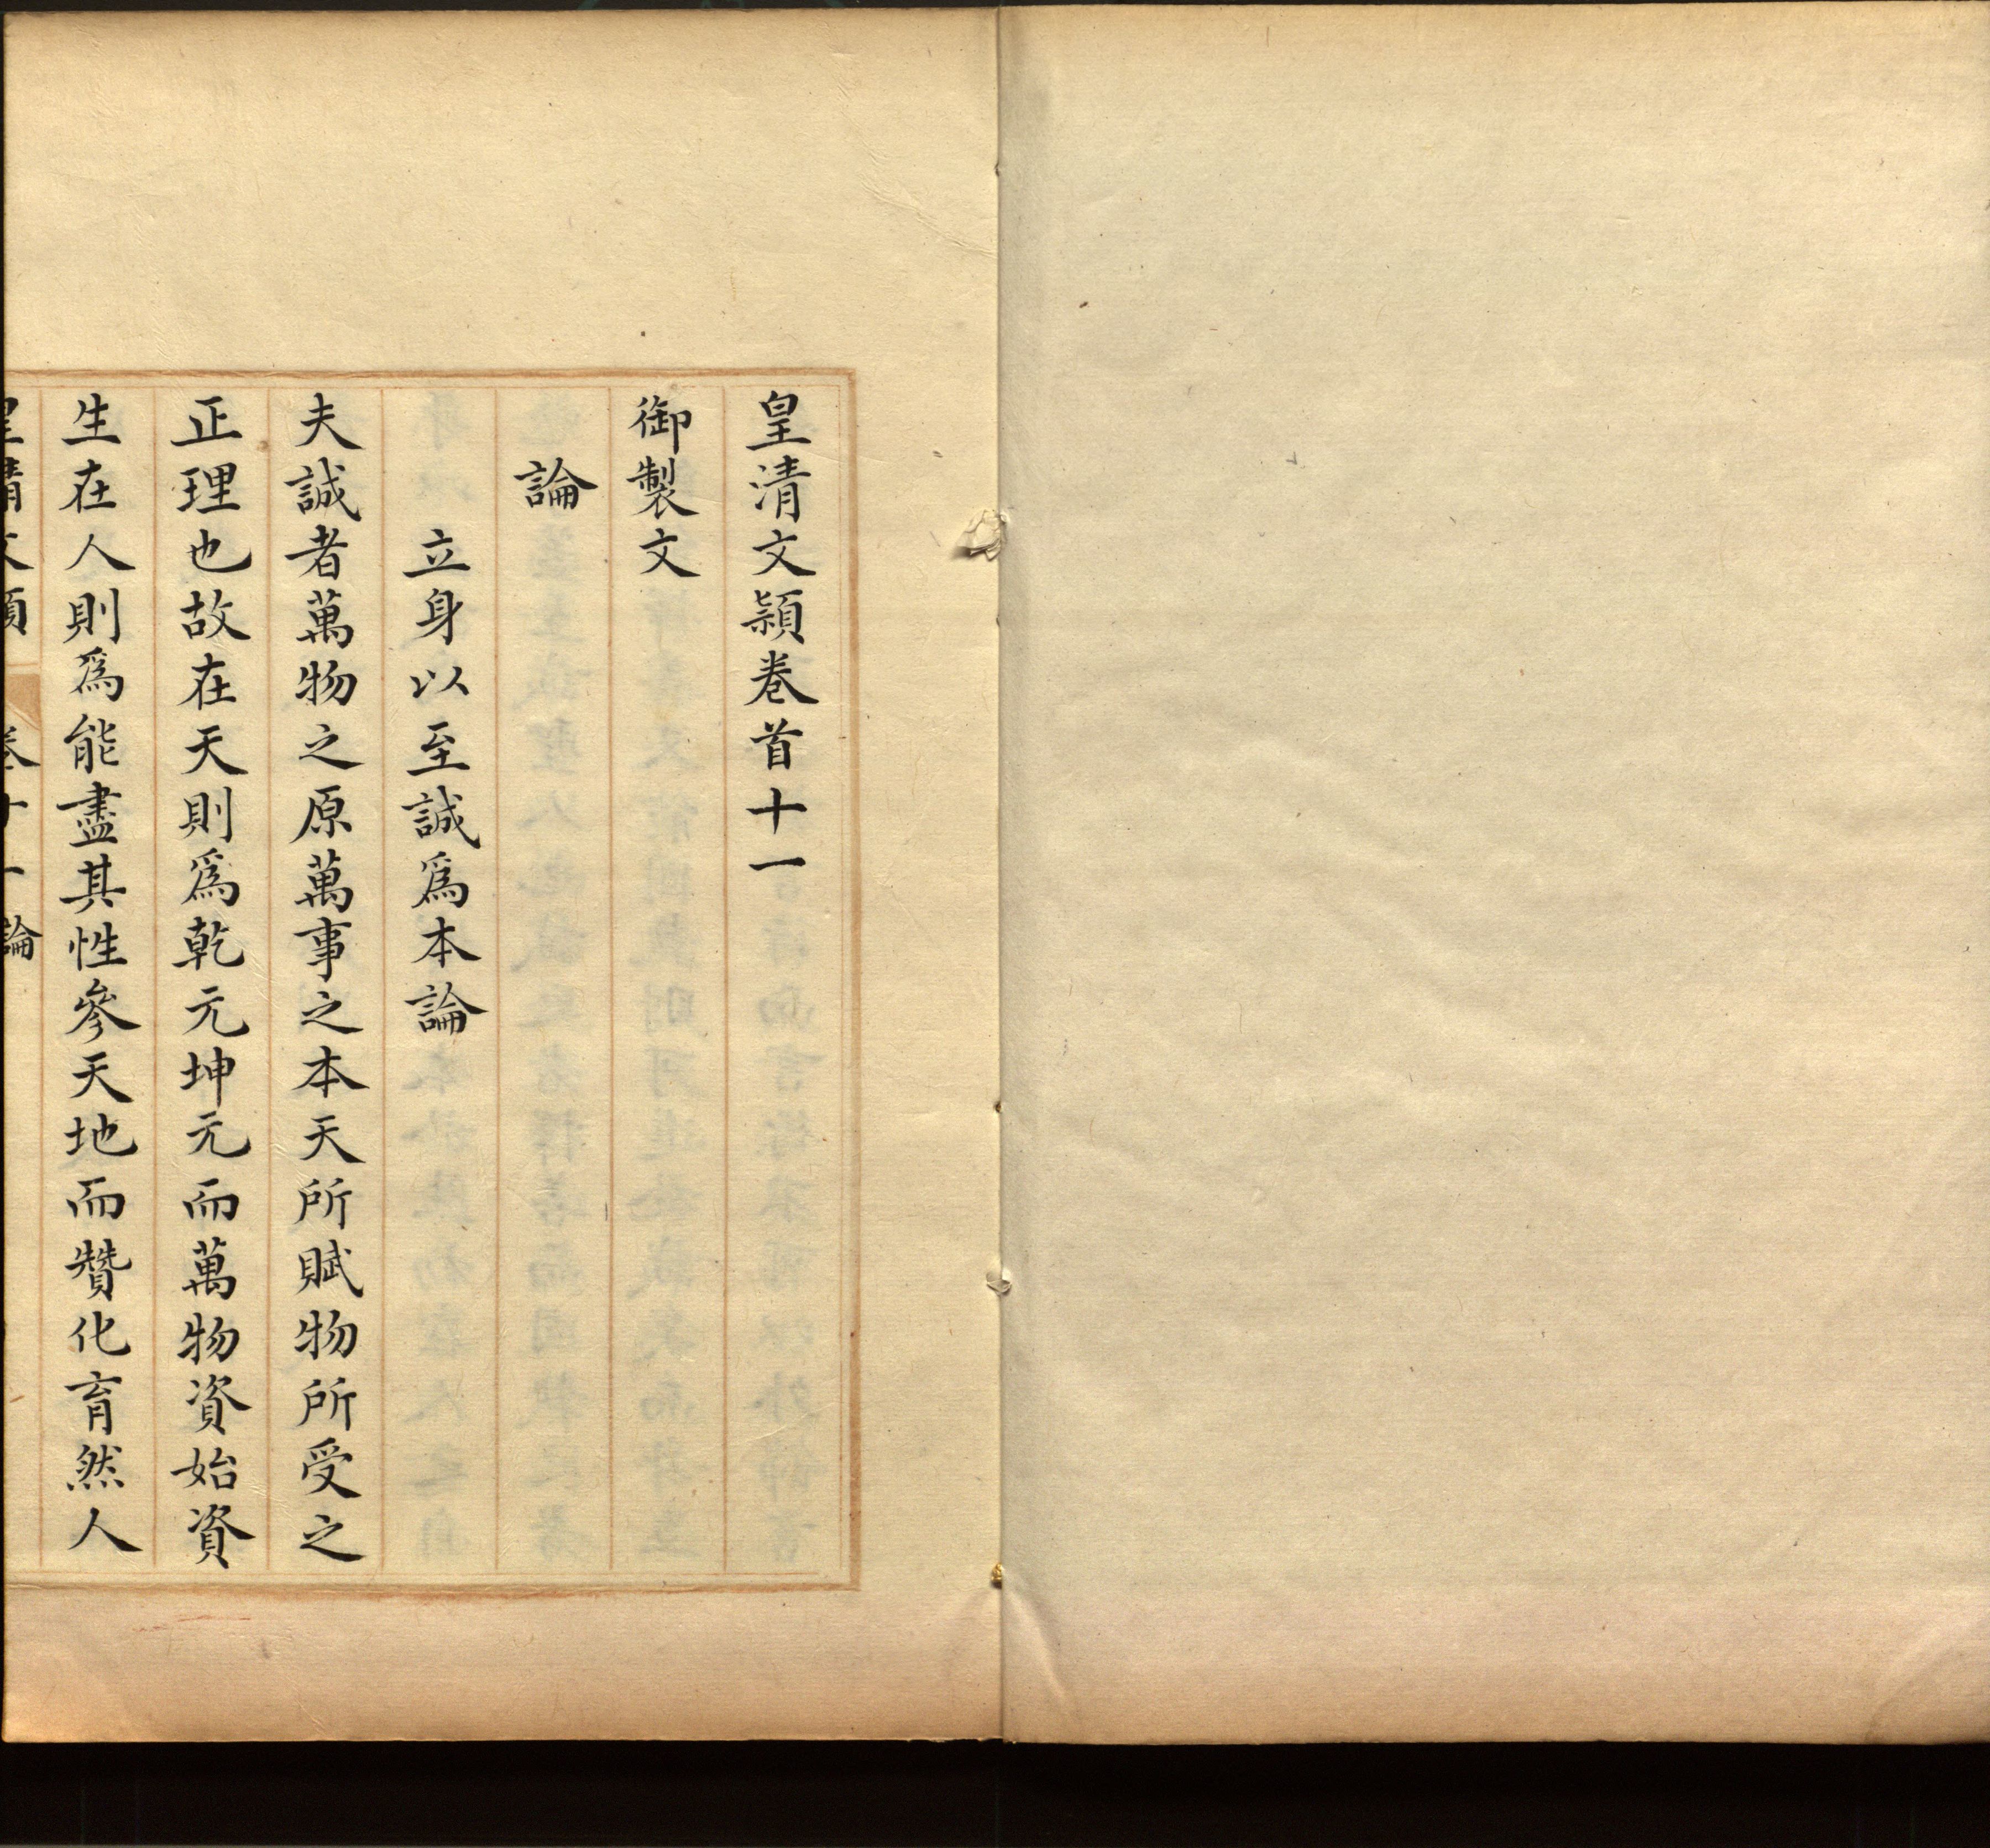 皇清文穎卷首十一
御製文
論
立身以至誠爲本論
夫誠者萬物之原萬事之本天所賦物所受之
正理也故在天則爲乾元坤元而萬物資始資
生在人則爲能盡其性參天地而贊化育然人
皇清文穎 卷十一論